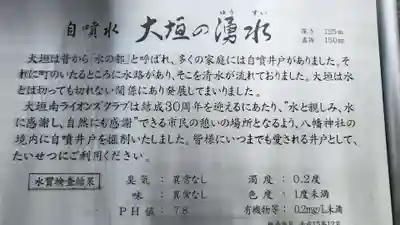 自噴水 大垣の湧水
ゆう すい
深さ 125m
直径 150mm
大垣は昔から「水の都」と呼ばれ、多くの家庭には自噴井戸がありました。そ
れに町のいたるところに水路があり、そこを清水が流れておりました。大垣は水
とは切っても切れない関係にあり発展してまいりました。
大垣南ライオンズクラブは結成30周年を迎えるにあたり、“水と親しみ、水
に感謝し、自然にも感謝”できる市民の憩いの場所となるよう、八幡神社の
境内に自噴井戸を掘削いたしました。皆様にいつまでも愛される井戸として、
たいせつにご利用ください。
水質検査結果
臭気：異常なし 濁度：0.2度
味：異常なし 色度：1度未満
PH値：7.8 有機物等：0.2mg/L未満